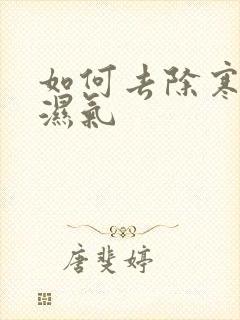 如何去除寒
濕氣
唐斐婷